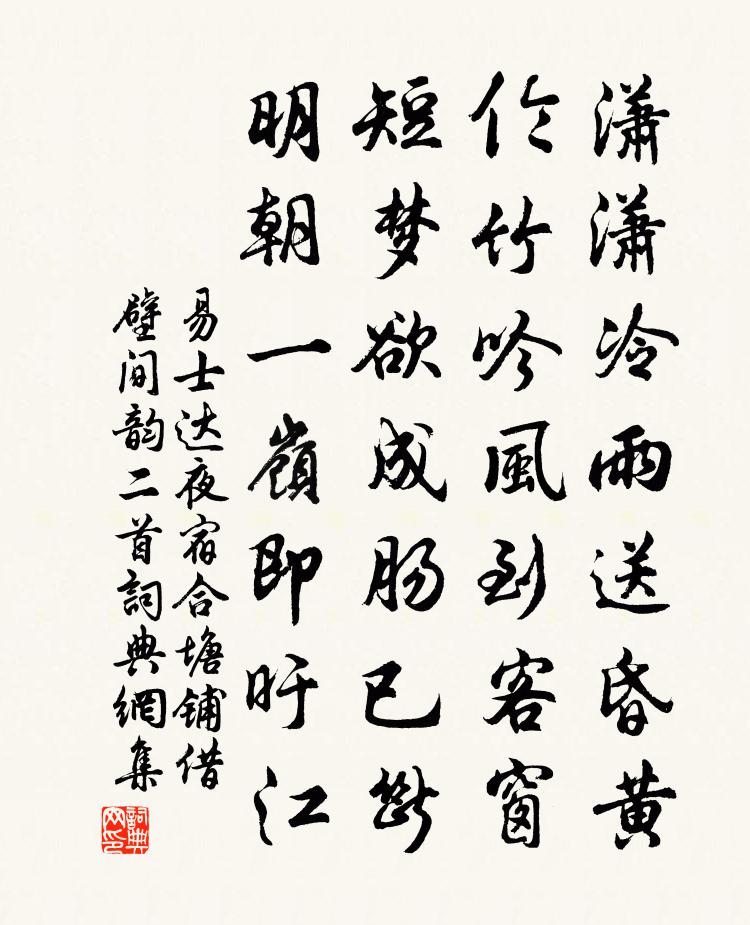 瀟瀟冷雨送昏黄
竹吟風到客窗
短梦欲成肠已斷
明朝一嶺即盱江
易士达夜宿合塘鋪借
壁间韵二首詞典網集
詞典
网印